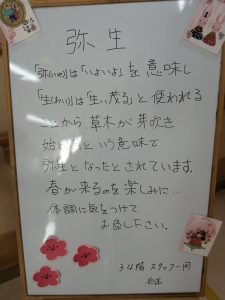 弥生
「弥(いや)」は「いよいよ」を意味し
「生(おい)」は「生い茂る」と使われる
ことから、草木が芽吹き
始める という意味で
弥生となったとされています。
春が来るのを楽しみに…
体調に気をつけて
お過し下さい。
3.4階 スタッフ一同